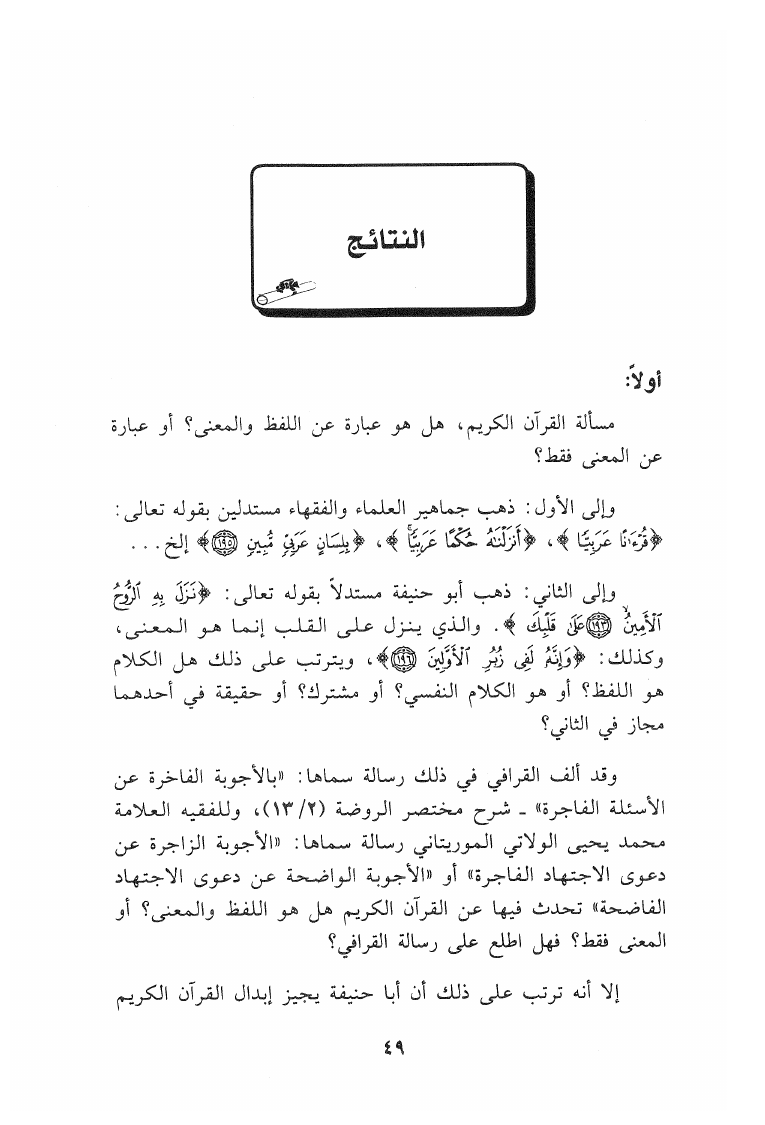 النتائج
أولاً:
مسألة القرآن الكريم، هل هو عبارة عن اللفظ والمعنى؟ أو عبارة
عن المعنى فقط؟
وإلى الأول: ذهب جماهير العلماء والفقهاء مستدلين بقوله تعالى:
﴿قُرْءَٰنًا عَرَبِيًّا﴾، ﴿أَنزَلْنَٰهُ حُكْمًا عَرَبِيًّا﴾، ﴿بِلِسَانٍ عَرَبِيٍّ مُّبِينٍ ١٩٥﴾ إلخ...
وإلى الثاني: ذهب أبو حنيفة مستدلاً بقوله تعالى: ﴿نَزَلَ بِهِ ٱلرُّوحُ
ٱلْأَمِينُ ١٩٣ عَلَىٰ قَلْبِكَ﴾. والذي ينزل على القلب إنما هو المعنى،
وكذلك: ﴿وَإِنَّهُۥ لَفِى زُبُرِ ٱلْأَوَّلِينَ ١٩٦﴾، ويترتب على ذلك هل الكلام
هو اللفظ؟ أو هو الكلام النفسي؟ أو مشترك؟ أو حقيقة في أحدهما
مجاز في الثاني؟
وقد ألف القرافي في ذلك رسالة سماها: «بالأجوبة الفاخرة عن
الأسئلة الفاجرة» ـ شرح مختصر الروضة (١٣/٢)، وللفقيه العلامة
محمد يحيى الولاتي الموريتاني رسالة سماها: «الأجوبة الزاجرة عن
دعوى الاجتهاد الفاجرة» أو «الأجوبة الواضحة عن دعوى الاجتهاد
الفاضحة» تحدث فيها عن القرآن الكريم هل هو اللفظ والمعنى؟ أو
المعنى فقط؟ فهل اطلع على رسالة القرافي؟
إلا أنه ترتب على ذلك أن أبا حنيفة يجيز إبدال القرآن الكريم
٤٩